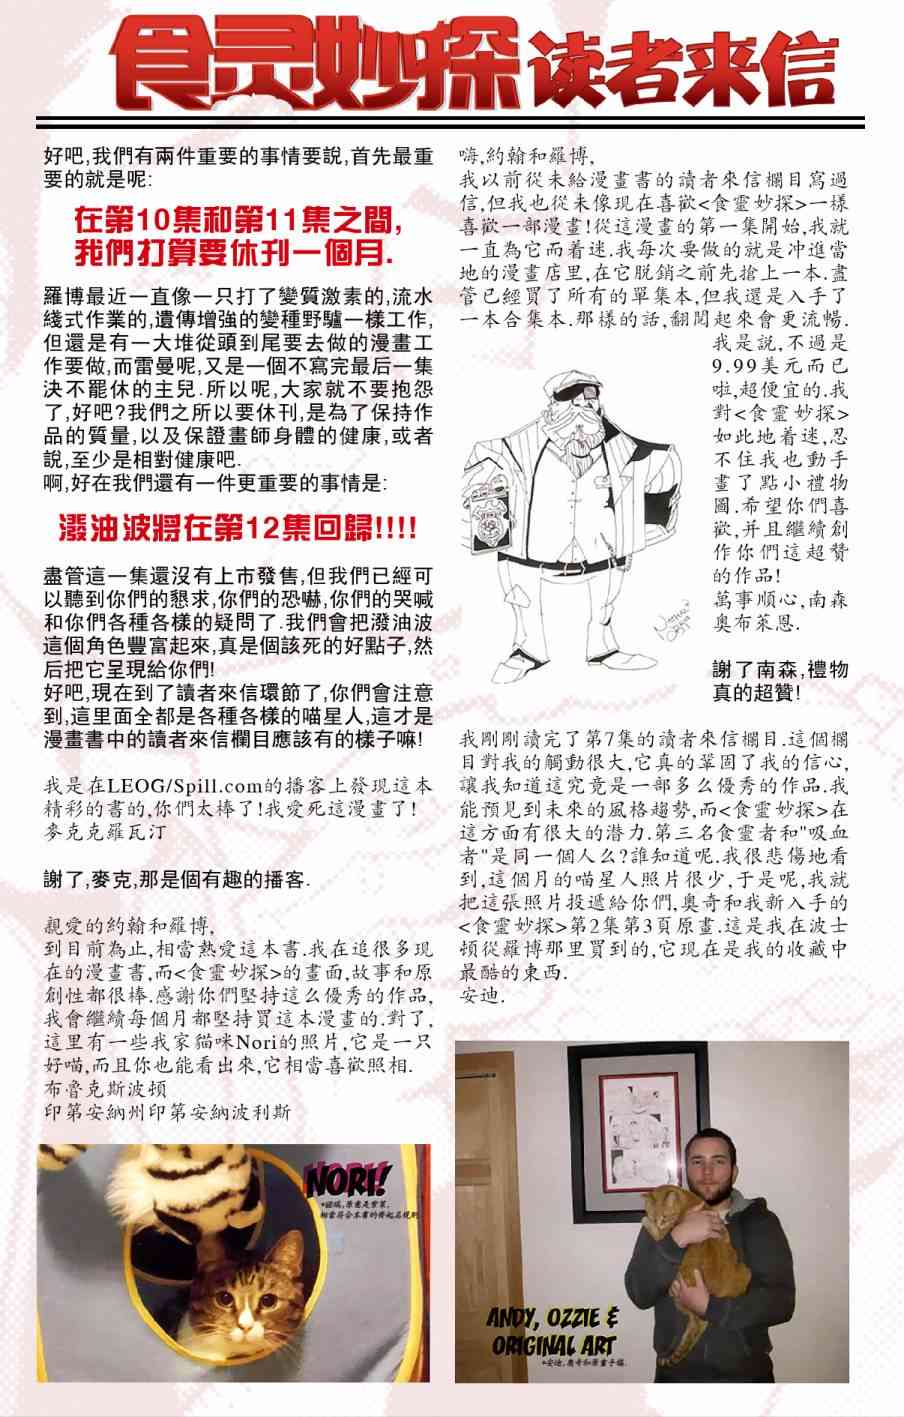 食灵妙探读者来信
好吧,我們有兩件重要的事情要說,首先最重
要的就是呢:
在第10集和第11集之間,
我們打算要休刊一個月.
羅博最近一直像一只打了變質激素的,流水
綫式作業的,遺傳增強的變種野驢一樣工作,
但還是有一大堆從頭到尾要去做的漫畫工
作要做,而雷曼呢,又是一個不寫完最后一集
決不罷休的主兒.所以呢,大家就不要抱怨
了,好吧?我們之所以要休刊,是為了保持作
品的質量,以及保證畫師身體的健康,或者
說,至少是相對健康吧.
啊,好在我們還有一件更重要的事情是:
潑油波將在第12集回歸!!!!
盡管這一集還沒有上市發售,但我們已經可
以聽到你們的懇求,你們的恐嚇,你們的哭喊
和你們各種各樣的疑問了.我們會把潑油波
這個角色豐富起來,真是個該死的好點子,然
后把它呈現給你們!
好吧,現在到了讀者來信環節了,你們會注意
到,這里面全都是各種各樣的喵星人,這才是
漫畫書中的讀者來信欄目應該有的樣子嘛!
我是在LEOG/Spill.com的播客上發現這本
精彩的書的,你們太棒了!我愛死這漫畫了!
麥克克羅瓦汀
謝了,麥克,那是個有趣的播客.
親愛的約翰和羅博,
到目前為止,相當熱愛這本書.我在追很多現
在的漫畫書,而<食靈妙探>的畫面,故事和原
創性都很棒.感謝你們堅持這么優秀的作品,
我會繼續每個月都堅持買這本漫畫的.對了,
這里有一些我家貓咪Nori的照片,它是一只
好喵,而且你也能看出來,它相當喜歡照相.
布魯克斯波頓
印第安納州印第安納波利斯
NORI!
相當符合本書的俗起名規則
嗨,約翰和羅博,
我以前從未給漫畫書的讀者來信欄目寫過
信,但我也從未像現在喜歡<食靈妙探>一樣
喜歡一部漫畫!從這漫畫的第一集開始,我就
一直為它而着迷.我每次要做的就是冲進當
地的漫畫店里,在它脫銷之前先搶上一本.盡
管已經買了所有的單集本,但我還是入手了
一本合集本.那樣的話,翻閱起來會更流暢.
我是說,不過是
9.99美元而已
啦,超便宜的.我
對<食靈妙探>
如此地着迷,忍
不住我也動手
畫了點小禮物
圖.希望你們喜
歡,并且繼續創
作你們這超贊
的作品!
萬事順心,南森
奧布萊恩.
謝了南森,禮物
真的超贊!
我剛剛讀完了第7集的讀者來信欄目.這個欄
目對我的觸動很大,它真的鞏固了我的信心,
讓我知道這究竟是一部多么優秀的作品.我
能預見到未來的風格趨勢,而<食靈妙探>在
這方面有很大的潜力.第三名食靈者和"吸血
者"是同一個人么?誰知道呢.我很悲傷地看
到,這個月的喵星人照片很少,于是呢,我就
把這張照片投遞給你們,奧奇和我新入手的
<食靈妙探>第2集第3頁原畫.這是我在波士
頓從羅博那里買到的,它現在是我的收藏中
最酷的東西.
安迪.
ANDY, OZZIE &
ORIGINAL ART
*安迪,奧奇和原畫手稿.